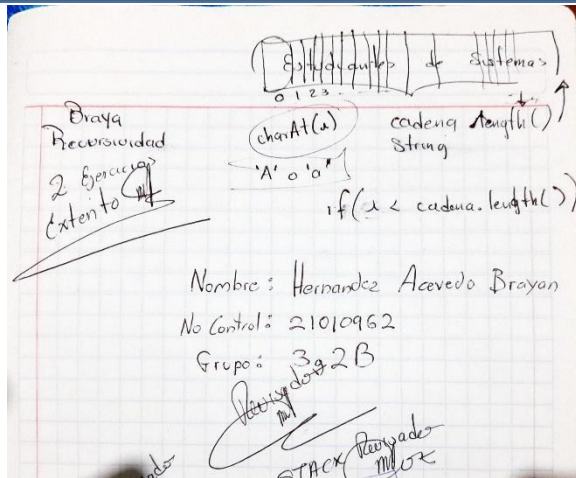 Estudiantes de Sistemas
0 1 2 3
Braya
Recursividad
2 Ejercicios
Extento
charAt(i)
'A' o 'a'
cadena length()
String
if(i < cadena.length())
Nombre: Hernandez Acevedo Brayan
No Control: 21010962
Grupo: 3g2B
Revisado
STACK Revisado